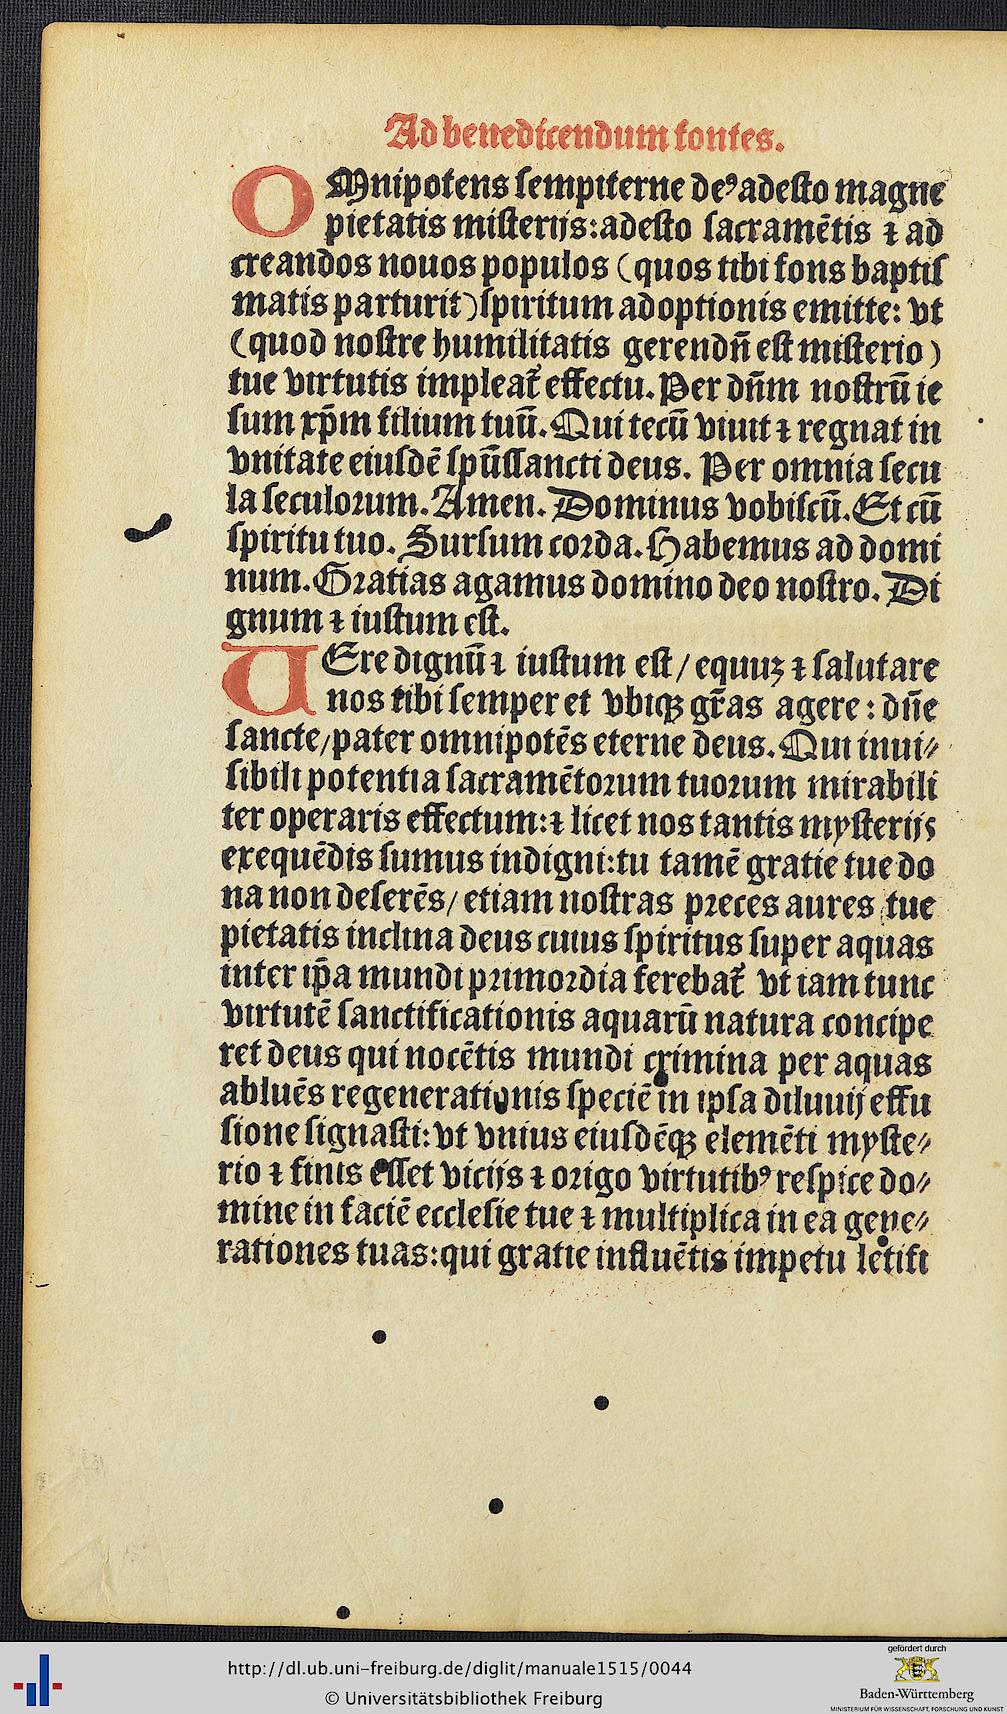 Ad benedicendum fontes.
OMnipotens sempiterne deꝰ adesto magne
pietatis misterijs: adesto sacramētis ⁊ ad
creandos nouos populos (quos tibi fons baptis
matis parturit) spiritum adoptionis emitte: vt
(quod nostre humilitatis gerendn̄ est misterio)
tue virtutis impleat᷑ effectu. Per dn̄m nostrū ie
sum xp̄m filium tuū. Qui tecū viuit ⁊ regnat in
vnitate eiusdē spūssancti deus. Per omnia secu
la seculorum. Amen. Dominus vobiscū. Et cū
spiritu tuo. Sursum corda. Habemus ad domi
num. Gratias agamus domino deo nostro. Di
gnum ⁊ iustum est.
UEre dignū ⁊ iustum est / equuꝫ ⁊ salutare
nos tibi semper et vbiqꝫ gr̄as agere: dn̄e
sancte / pater omnipotēs eterne deus. Qui inui⸗
sibili potentia sacramētorum tuorum mirabili
ter operaris effectum: ⁊ licet nos tantis mysterijs
exequēdis sumus indigni: tu tamē gratie tue do
na non deserēs / etiam nostras preces aures tue
pietatis inclina deus cuius spiritus super aquas
inter ip̄a mundi primordia ferebat᷑ vt iam tunc
virtutē sanctificationis aquarū natura concipe
ret deus qui nocētis mundi crimina per aquas
abluēs regenerationis speciē in ipsa diluuij effu
sione signasti: vt vnius eiusdēqꝫ elemēti myste⸗
rio ⁊ finis esset vicijs ⁊ origo virtutibꝰ respice do⸗
mine in faciē ecclesie tue ⁊ multiplica in ea gene⸗
rationes tuas: qui gratie influētis impetu letifi
http://dl.ub.uni-freiburg.de/diglit/manuale1515/0044
© Universitätsbibliothek Freiburg
gefördert durch
Baden-Württemberg
MINISTERIUM FÜR WISSENSCHAFT, FORSCHUNG UND KUNST